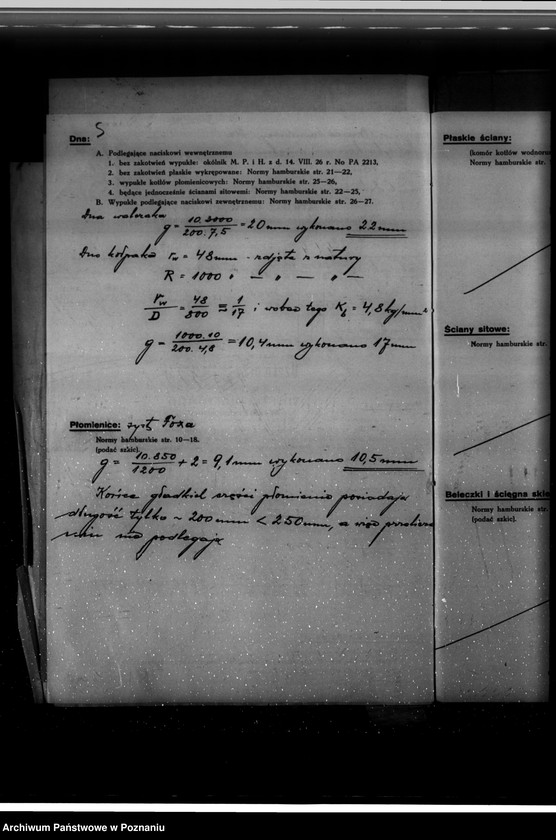 Dna:
A. Podlegające naciskowi wewnętrznemu
1. bez zakotwień wypukłe: okólnik M. P. i H. z d. 14. VIII. 26 r. No PA 2213,
2. bez zakotwień płaskie wykrępowane: Normy hamburskie str. 21—22,
3. wypukłe kotłów płomienicowych: Normy hamburskie str. 25—26,
4. będące jednocześnie ścianami sitowemi: Normy hamburskie str. 22—25,
B. Wypukłe podlegające naciskowi zewnętrznemu: Normy hamburskie str. 26—27.
Dna walczaka
g = 10.3000 / 200.7,5 = 20 mm wykonano 22 mm
Dno kołpaka rw = 48 mm - zdjęta z natury
R = 1000 " — " — " —
rw / D = 48 / 800 = 1 / 17 i wobec tego Kb = 4,8 kg/mm²
g = 1000.10 / 200.4,8 = 10,4 mm wykonano 17 mm
Płomienice: syst. Foxa
Normy hamburskie str. 10—18.
(podać szkic).
g = 10.850 / 1200 + 2 = 9,1 mm wykonano 10,5 mm
Końce gładkich części płomienic posiadają
długość tylko ~ 200 mm < 250 mm, a więc
nie podlegają
Płaskie ściany:
(komór kotłów wodnoru
Normy hamburskie str.
Ściany sitowe:
Normy hamburskie str.
Beleczki i ścięgna skle
Normy hamburskie str.
(podać szkic).
Archiwum Państwowe w Poznaniu